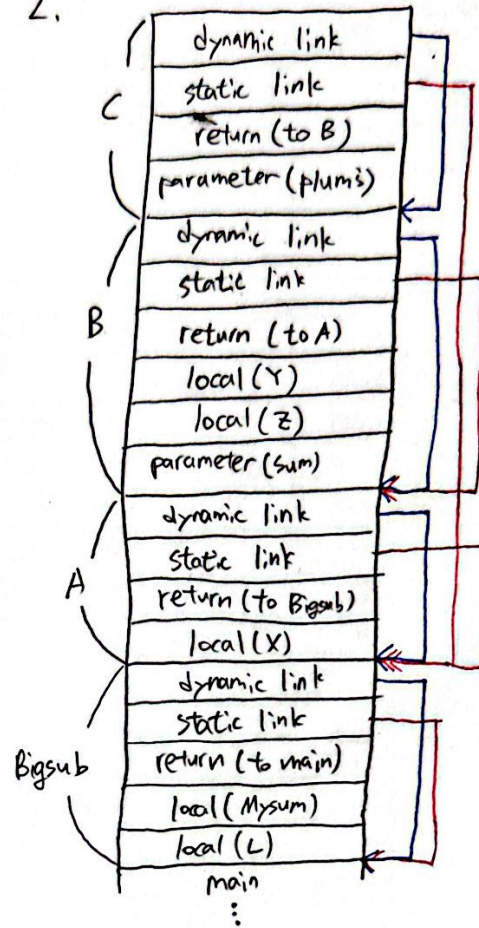 2.
dynamic link
static link
C
return (to B)
parameter (plums)
dynamic link
static link
B
return (to A)
local (Y)
local (Z)
parameter (sum)
dynamic link
static link
A
return (to Bigsub)
local (X)
dynamic link
static link
Bigsub
return (to main)
local (Mysum)
local (L)
main
⋮